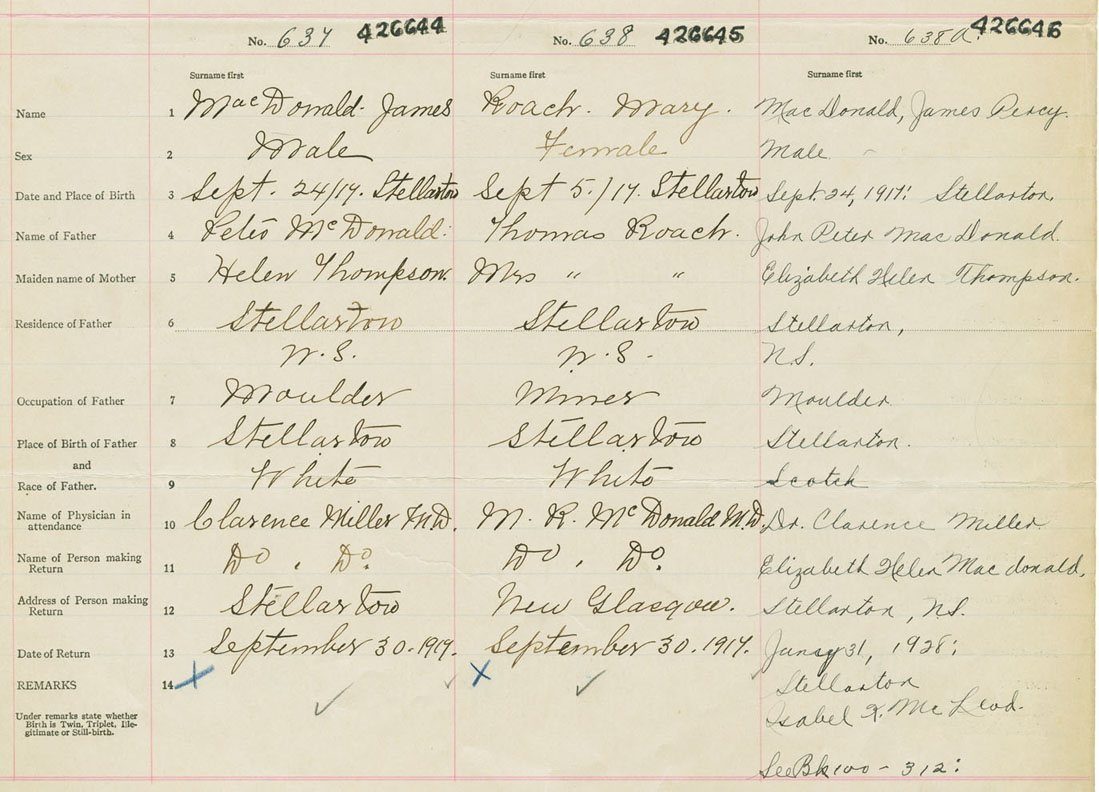 No. 637 426644 No. 638 426645 No. 638A. 426646
Surname first Surname first Surname first
Name 1 MacDonald. James Roach. Mary. MacDonald, James Percy.
Sex 2 Male Female Male
Date and Place of Birth 3 Sept. 24/17. Stellarton Sept 5./17. Stellarton Sept. 24, 1917: Stellarton.
Name of Father 4 Peter McDonald. Thomas Roach. John Peter MacDonald.
Maiden name of Mother 5 Helen Thompson. Mrs " " Elizabeth Helen Thompson.
Residence of Father 6 Stellarton Stellarton Stellarton,
N.S. N.S. N.S.
Occupation of Father 7 Moulder Miner Moulder
Place of Birth of Father 8 Stellarton Stellarton Stellarton.
and
Race of Father. 9 White White Scotch
Name of Physician in
attendance 10 Clarence Miller M.D. M. R. McDonald M.D. Dr. Clarence Miller
Name of Person making
Return 11 Do . Do. Do . Do. Elizabeth Helen Macdonald.
Address of Person making
Return 12 Stellarton New Glasgow. Stellarton, N.S.
Date of Return 13 September 30.1917. September 30.1917. 31, 1928:
REMARKS 14 x x Stellarton
Under remarks state whether
Birth is Twin, Triplet, Ille-
gitimate or Still-birth.
Isabel McLeod.
See Bk 100 - 312: